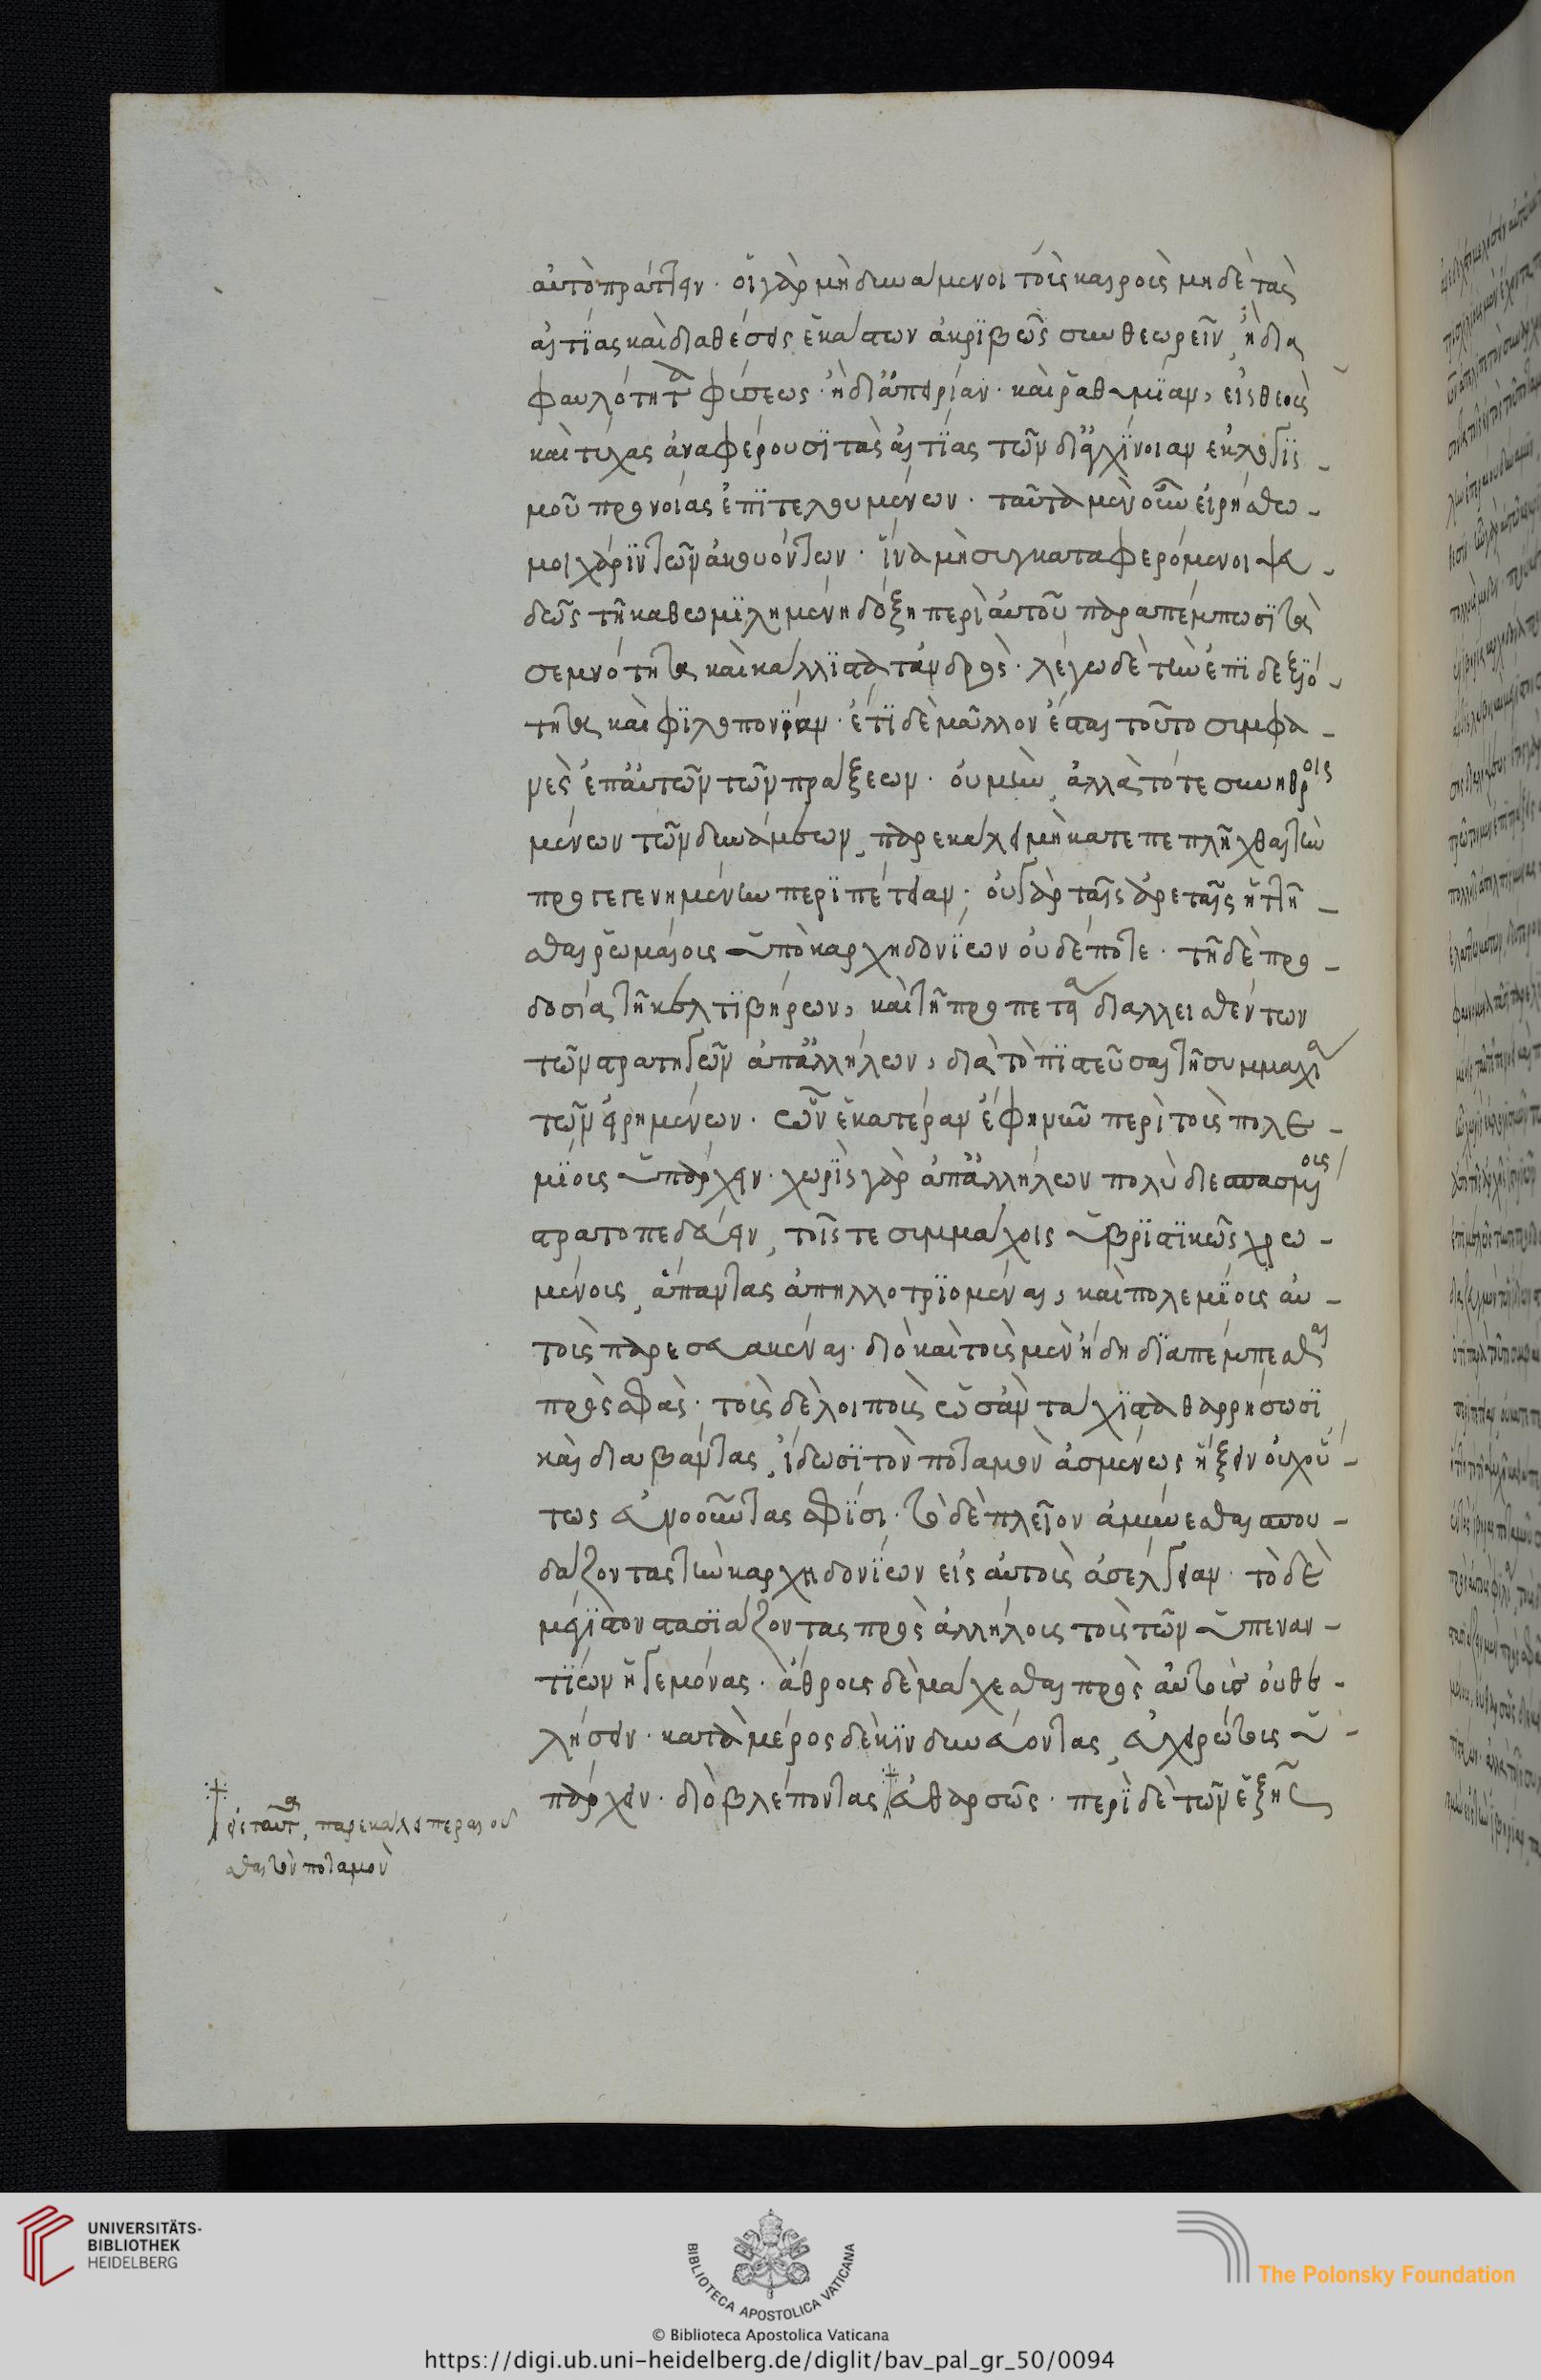 αὐτὸ πράττειν· οἱ γὰρ μὴ δυνάμενοι τοὺς καιροὺς μηδὲ τὰς
αἰτίας καὶ διαθέσεις ἑκάστων ἀκριβῶς συνθεωρεῖν, ἢ δια
φαυλότητα φύσεως· ἢ δι' ἀπειρίαν· καὶ ῥαθυμίαν, εἰς θεοὺς
καὶ τύχας ἀναφέρουσι τὰς αἰτίας τῶν δι' ἀγχίνοιαν ἐκ λογισ-
μοῦ προνοίας ἐπιτελουμένων. ταῦτα μὲν οὖν εἰρήσθω-
μοι χάριν τῶν ἀκουόντων· ἵνα μὴ συγκαταφερόμενοι ψευ-
δῶς τῇ καθωμιλημένῃ δόξῃ περὶ αὐτοῦ παραπέμπωσι τὰ
σεμνότατα καὶ κάλλιστα τἀνδρός· λέγω δὲ τὴν ἐπιδεξιό-
τητα καὶ φιλοπονίαν· ἔτι δὲ μᾶλλον ἔσται τοῦτο συμφα-
νὲς ἐπ' αὐτῶν τῶν πράξεων. οὐ μὴν, ἀλλὰ τότε συνηθροισ
μένων τῶν δυνάμεων, παρεκάλει μὴ καταπεπλῆχθαι τὴν
προγεγενημένην περιπέτειαν· οὐ γὰρ ταῖς ἀρεταῖς ἡττῆ-
σθαι ῥωμαίους ὑπὸ καρχηδονίων οὐδέποτε· τῇ δὲ προ-
δοσίᾳ τῇ κελτιβήρων, καὶ τῇ προπετείᾳ διακλεισθέντων
τῶν στρατηγῶν ἀπ' ἀλλήλων, διὰ τὸ πιστεῦσαι τῇ συμμαχίᾳ
τῶν εἰρημένων. ὧν ἑκάτερα νῦν ἔφη περὶ τοὺς πολε-
μίους ὑπάρχειν· χωρὶς γὰρ ἀπ' ἀλλήλων πολὺ διεσπασμένους
στρατοπεδεύειν, τοῖς τε συμμάχοις ὑβριστικῶς χρω-
μένους, ἅπαντας ἀπηλλοτριωμένους, καὶ πολεμίους αὑ-
τοῖς παρεσκευακέναι. διὸ καὶ τοὺς μὲν ἤδη διαπέμπεσθαι
πρὸς σφᾶς· τοὺς δὲ λοιποὺς ὡς ἂν τάχιστα θαρρήσωσι
καὶ διαβάντας, ἴδωσι τὸν ποταμὸν ἀσμένως ἥξειν οὐχ οὕ-
τως εὐνοοῦντας σφίσι· τὸ δὲ πλεῖον ἀμύνεσθαι σπου-
δάζοντας τὴν καρχηδονίων εἰς αὐτοὺς ἀσέλγειαν. τὸ δὲ
μέγιστον στασιάζοντας πρὸς ἀλλήλους τοὺς τῶν ὑπεναν-
τίων ἡγεμόνας. ἀθρόους δὲ μάχεσθαι πρὸς αὐτοὺς οὐ θε-
λήσειν· κατὰ μέρος δὲ κινδυνεύοντας, εὐχειρώτους ὑ-
πάρχειν. διὸ βλέποντας εὐθαρσῶς. περὶ δὲ τῶν ἑξῆς
εἰς ταῦτα, παρεκάλει περαιοῦ
σθαι τὸν ποταμὸν
UNIVERSITÄTS-
BIBLIOTHEK
HEIDELBERG
BIBLIOTECA APOSTOLICA VATICANA
The Polonsky Foundation
© Biblioteca Apostolica Vaticana
https://digi.ub.uni-heidelberg.de/diglit/bav_pal_gr_50/0094